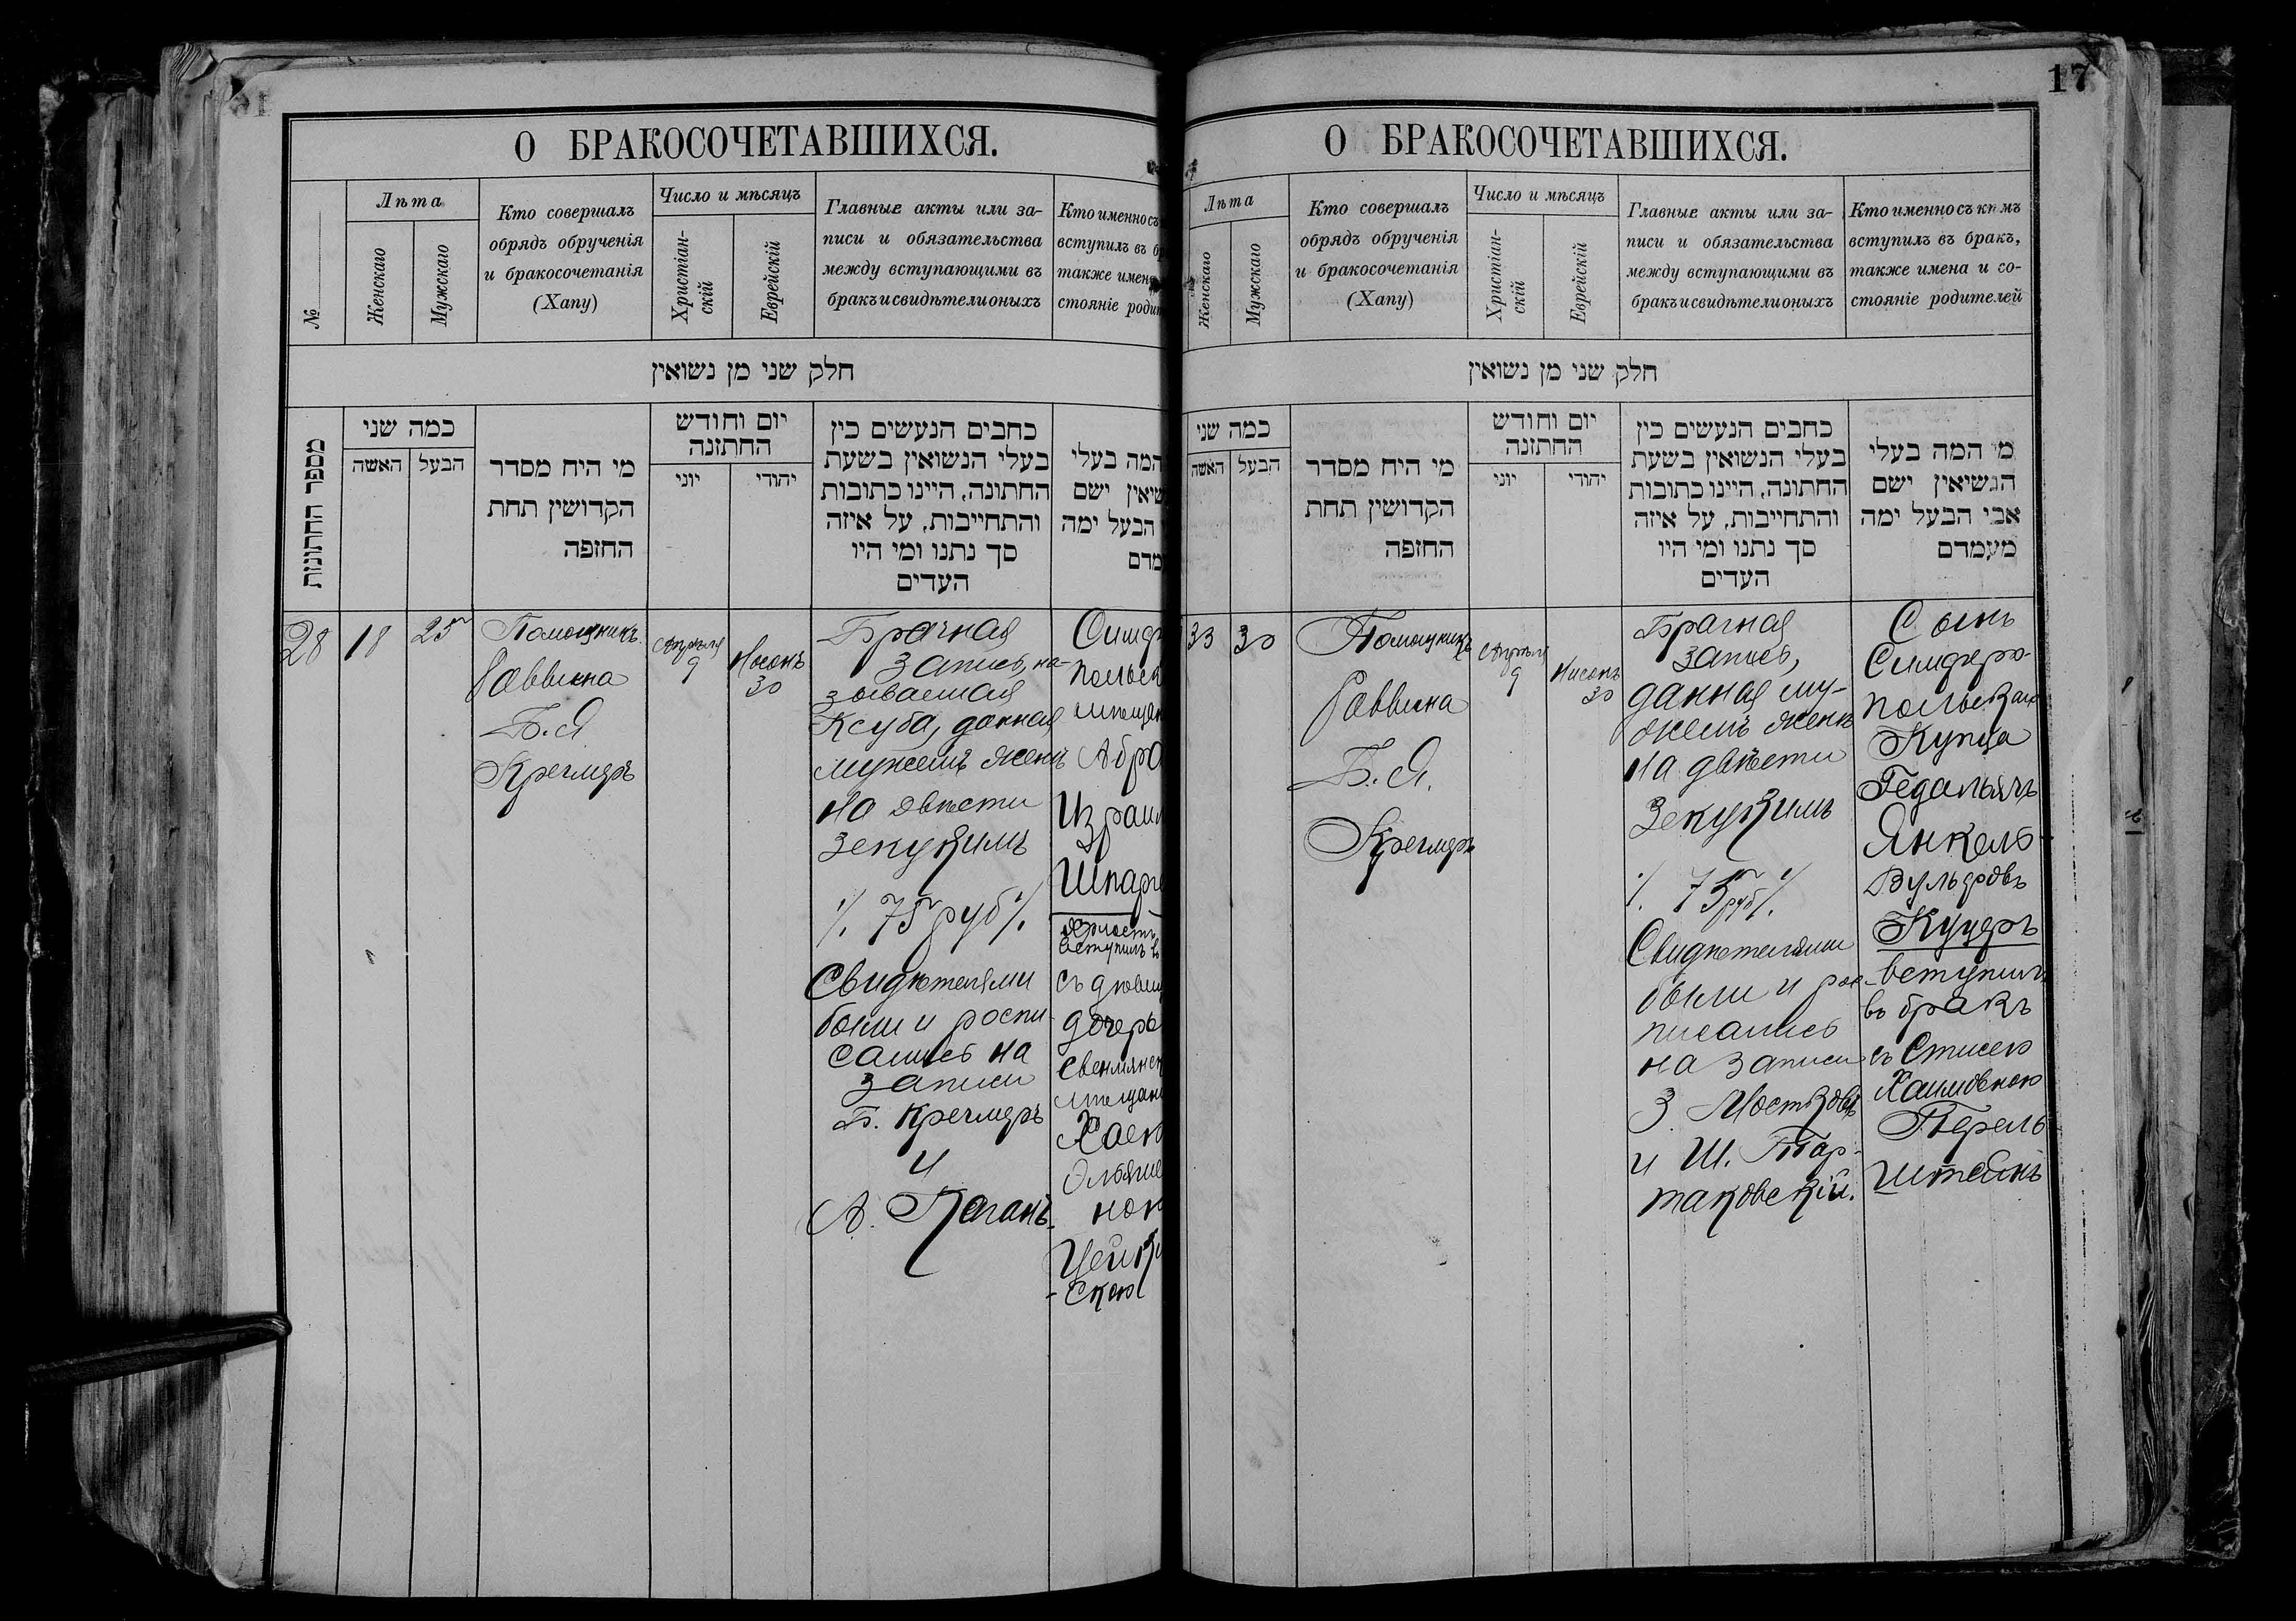 О БРАКОСОЧЕТАВШИХСЯ.
№
Лѣта
Женскаго
Мужскаго
Кто совершалъ
обрядъ обрученія
и бракосочетанія
(Хапу)
Число и мѣсяцъ
Христіан-
скій
Еврейскій
Главные акты или за-
писи и обязательства
между вступающими въ
бракъ и свидѣтели оныхъ
Кто именно съ
вступилъ въ б
также имен
стояніе роди
חלק שני מן נשואין
מספר החתונות
כמה שני
האשה
הבעל
מי היח מסדר
הקדושין תחת
החזפה
יום וחודש
החתזנה
יוני
יהודי
כחבים הנעשים כין
בעלי הנשואין בשעת
החתונה, היינו כתובות
והתחייבות, על איזה
סך נתנו ומי היו
העדים
המה בעלי
שיאין ישם
הבעל ימה
מדם
28
18
25
Помощникъ
Раввина
Б. Я
Кречмеръ
Апрѣля
9
Нисонъ
30
Брачная
запись, на-
зываемая
Ксуба, данная
мужемъ женѣ
на двѣсти
зекукимъ
./. 75 руб ./.
Свидѣтелями
были и роспи
сались на
записи
Б. Кречмеръ
и
А. Коганъ
Симф
польск
мѣщан
Абра
Израил
Шпарг
вступилъ в
съ дѣвиц
дочерь
Свенцянск
мѣщан
Хаею
ною
Цейк
-скою
17
О БРАКОСОЧЕТАВШИХСЯ.
Лѣта
Женскаго
Мужскаго
Кто совершалъ
обрядъ обрученія
и бракосочетанія
(Хапу)
Число и мѣсяцъ
Христіан-
скій
Еврейскій
Главные акты или за-
писи и обязательства
между вступающими въ
бракъ и свидѣтели оныхъ
Кто именно съ кѣмъ
вступилъ въ бракъ,
также имена и со-
стояніе родителей
חלק שני מן נשואין
כמה שני
האשה
הבעל
מי היח מסדר
הקדושין תחת
החזפה
יום וחודש
החתזנה
יוני
יהודי
כחבים הנעשים כין
בעלי הנשואין בשעת
החתונה, היינו כתובות
והתחייבות, על איזה
סך נתנו ומי היו
העדים
מי המה בעלי
הנשיאין ישם
אבי הבעל ימה
מעמדם
33
30
Помощникъ
Раввина
Б. Я.
Кречмеръ
Апрѣля
9
Нисонъ
30
Брачная
запись,
данная му-
жемъ женѣ
на двѣсти
зекукимъ
./. 75 руб ./.
Свидѣтелями
были и рос-
писались
на записи
З. Мостковъ
и Ш. Тар-
таковскій.
Сынъ
Симферо-
польскаго
Купца
Гедальячъ
Янкель-
Вульфовъ
Куцеръ
вступилъ
въ бракъ
съ Стисею
Хаимовною
Перель
штейнъ